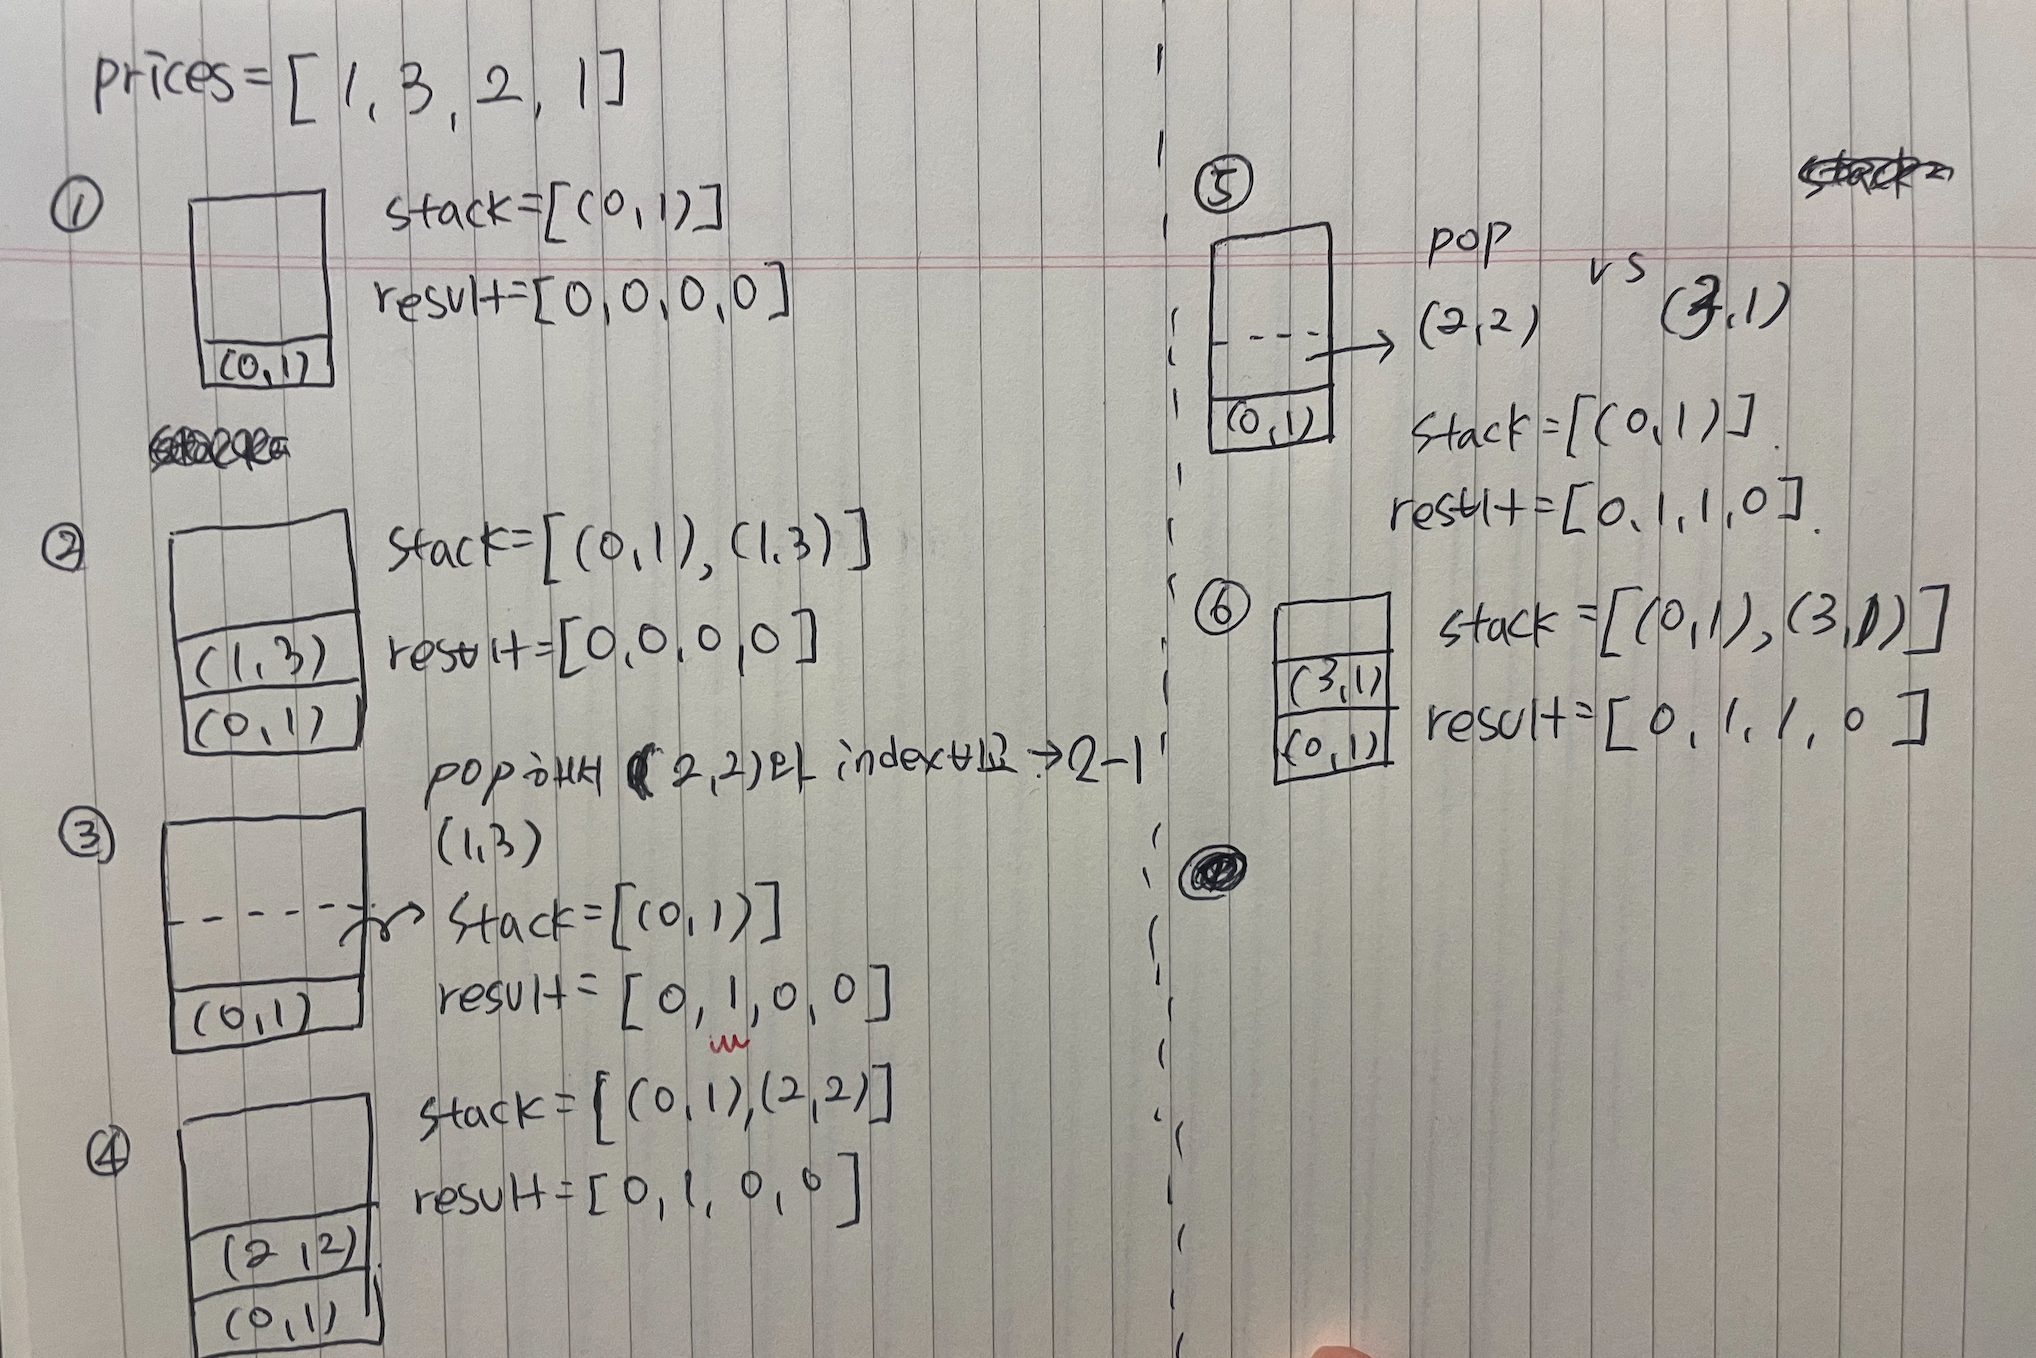 prices=[1,3,2,1]
①
stack=[(0,1)]
result=[0,0,0,0]
(0,1)
②
stack=[(0,1),(1,3)]
result=[0,0,0,0]
(1,3)
(0,1)
③
pop해서 (2,2)와 index비교→2-1
(1,3)
stack=[(0,1)]
result=[0,1,0,0]
(0,1)
④
stack=[(0,1),(2,2)]
result=[0,1,0,0]
(2,2)
(0,1)
⑤
pop
(2,2) vs (3,1)
(0,1)
stack=[(0,1)].
result=[0,1,1,0].
⑥
stack=[(0,1),(3,1)]
result=[0,1,1,0]
(3,1)
(0,1)